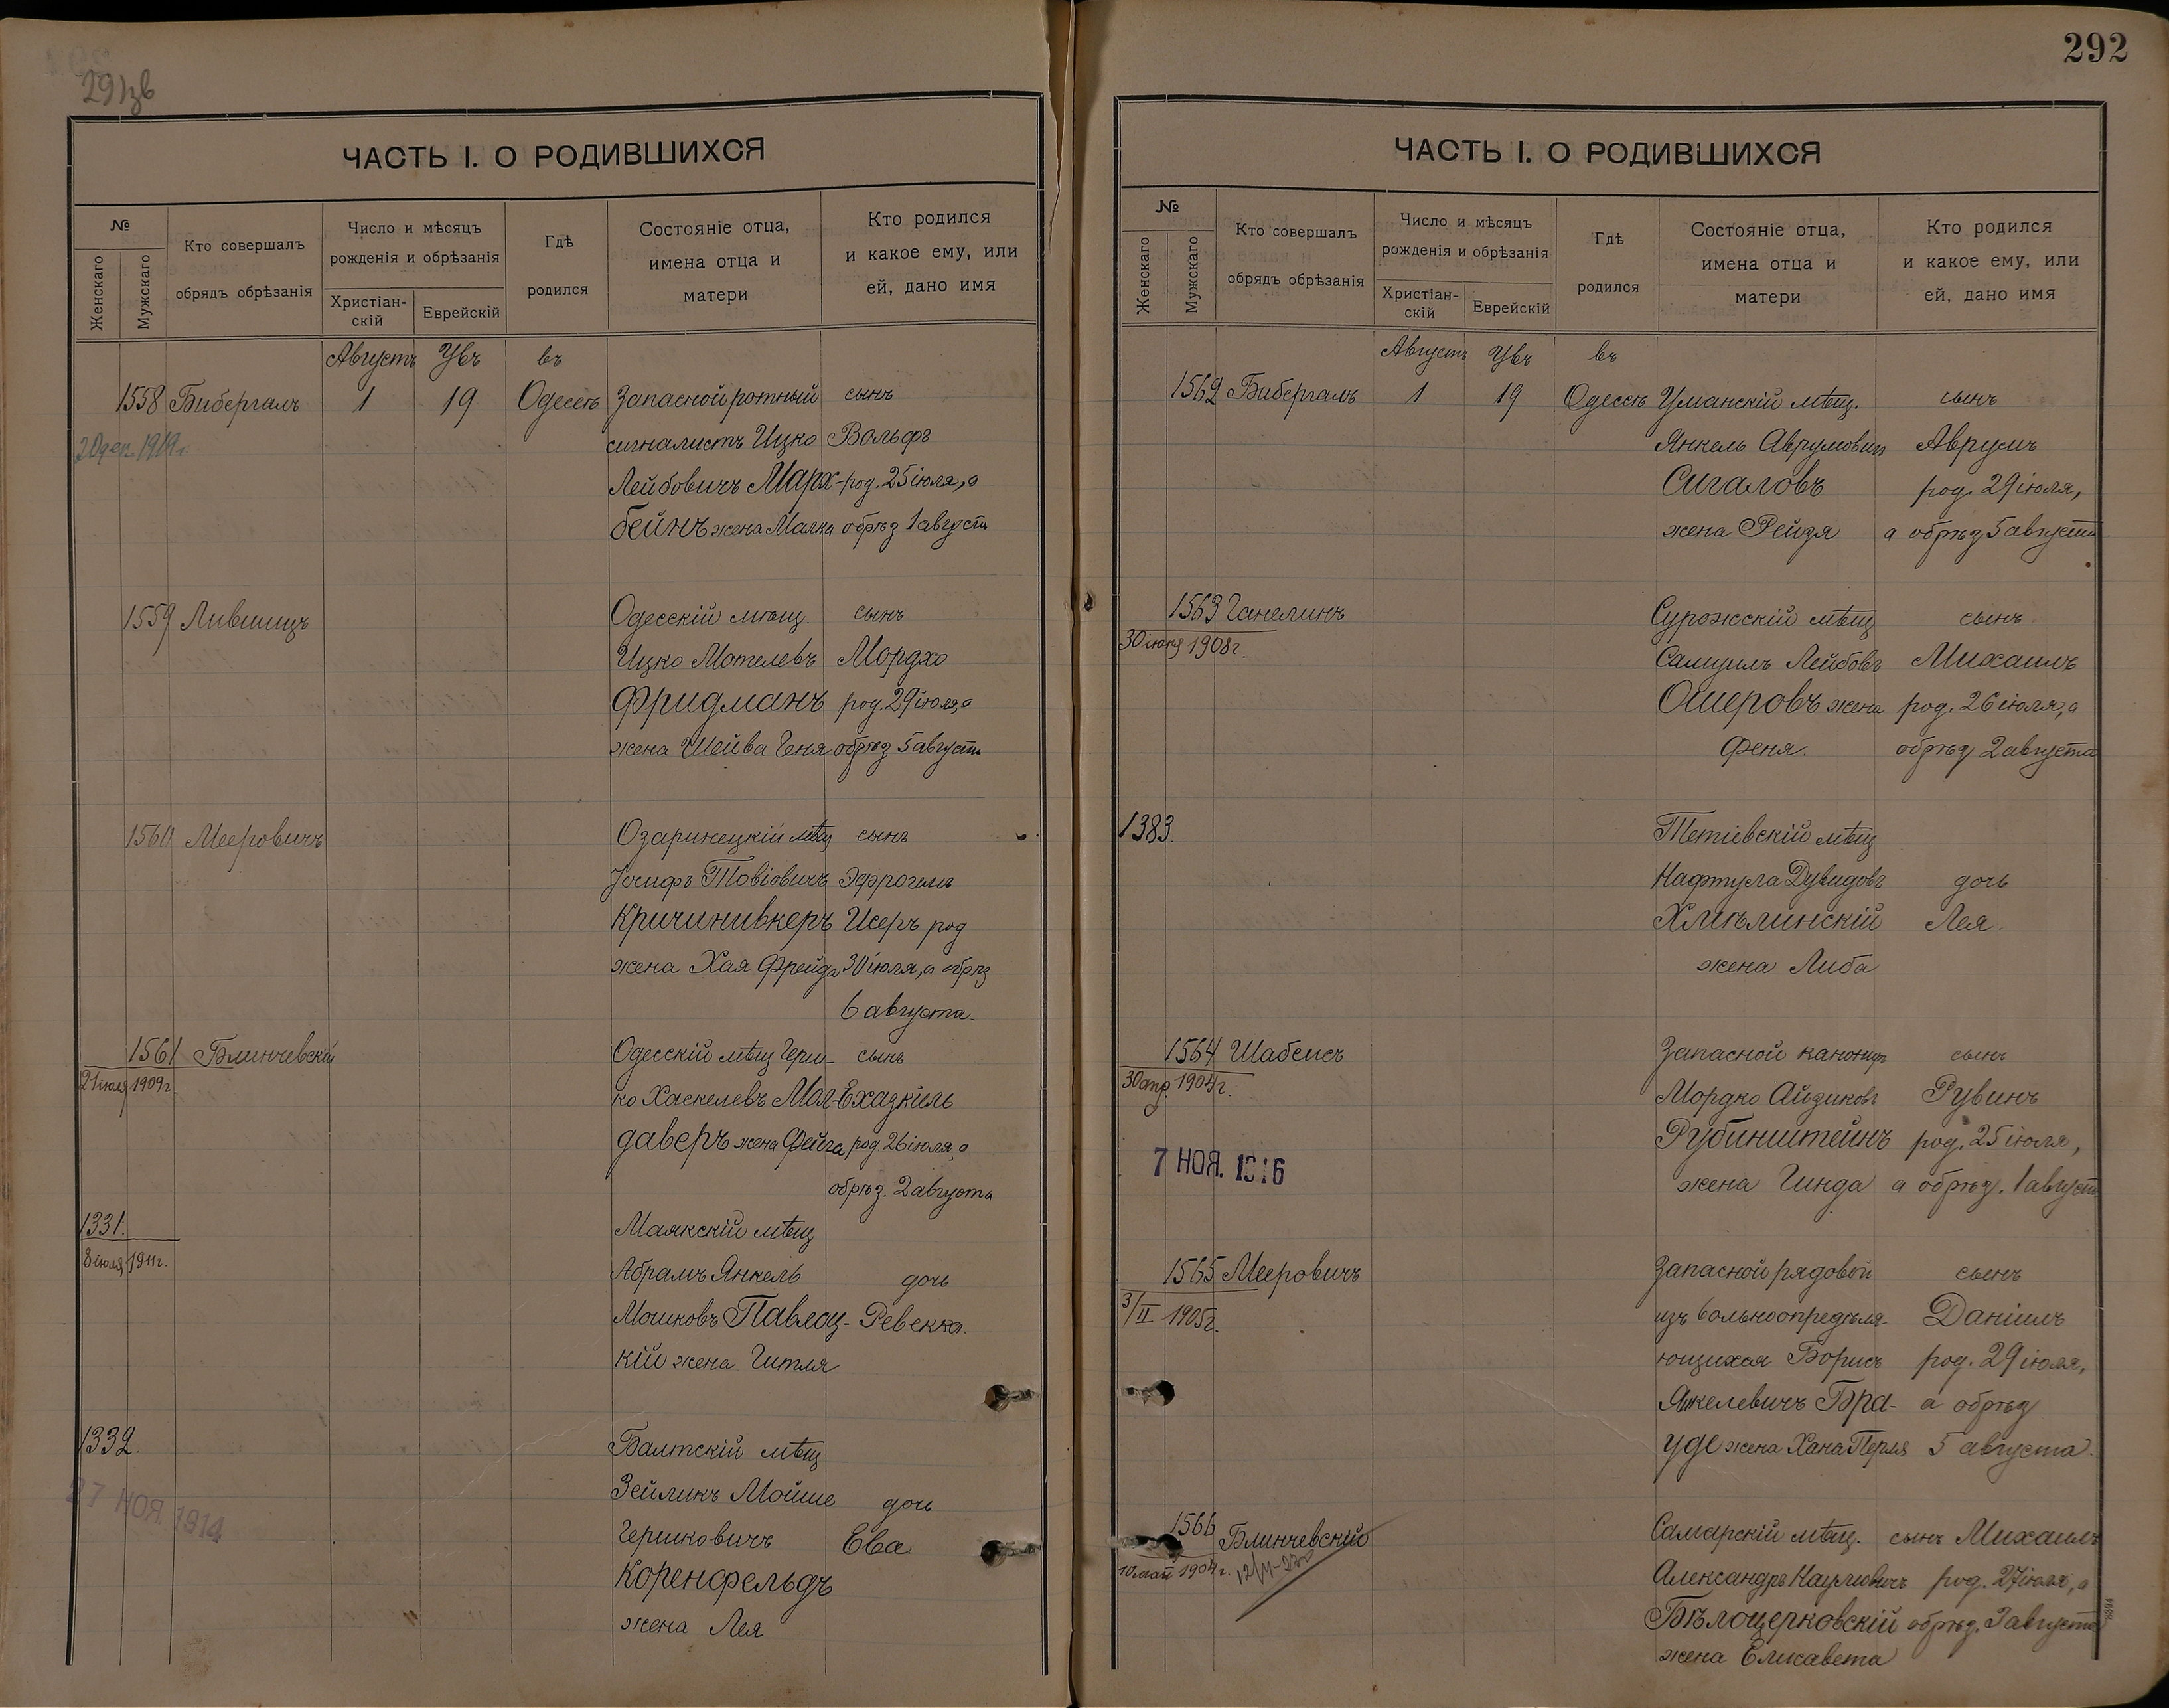 291зв
ЧАСТЬ I. О РОДИВШИХСЯ
№
Женскаго
Мужскаго
Кто совершалъ
обрядъ обрѣзанія
Число и мѣсяцъ
рожденія и обрѣзанія
Христіан-
скій
Еврейскій
Гдѣ
родился
Состояніе отца,
имена отца и
матери
Кто родился
и какое ему, или
ей, дано имя
Августъ Увъ въ
1558 Бибергалъ 1 19 Одессѣ Запасной ротный сынъ
сигналистъ Ицко Вольфъ
Лейбовичъ Марк- род. 25 іюля, а
бейнъ жена Малка обрѣз 1 августа
1559 Лившицъ Одесскій мѣщ. сынъ
Ицко Мотелевъ Мордхо
Фридманъ род. 29 іюля, а
жена Шейва Геня обрѣз 5 августа
1560 Мееровичъ Озаринецкій мѣщ сынъ
Іосифъ Товіовичъ Эфроимъ
Кричинивкеръ Исеръ род
жена Хая Фрейда 30 іюля, а обрѣз
6 августа.
1561 Блинчевскій Одесскій мѣщ Герш- сынъ
21 іюля 1909 г.
ко Хаскелевъ Мол- Ехазкіель
даверъ жена Фейга род. 26 іюля, а
обрѣз. 2 августа
1331. Маякскій мѣщ
8 іюля 1911 г.
Абрамъ Янкель дочь
Мошковъ Павлоц- Ревекка.
кій жена Гитля
1332. Балтскій мѣщ
27 НОЯ. 1914
Зейликъ Мойше дочь
Гершковичъ Ева
Коренфельдъ
жена Лея
292
ЧАСТЬ I. О РОДИВШИХСЯ
№
Женскаго
Мужскаго
Кто совершалъ
обрядъ обрѣзанія
Число и мѣсяцъ
рожденія и обрѣзанія
Христіан-
скій
Еврейскій
Гдѣ
родился
Состояніе отца,
имена отца и
матери
Кто родился
и какое ему, или
ей, дано имя
Августъ Увъ въ
1562 Бибергалъ 1 19 Одессѣ Уманскій мѣщ. сынъ
Янкель Аврумовичъ Аврумъ
Сигаловъ род. 29 іюля,
жена Рейзя а обрѣз 5 августа
1563 Ганелинъ Сурожскій мѣщ сынъ
30 іюня 1908 г.
Самуилъ Лейбовъ Михаилъ
Ошеровъ жена род. 26 іюля, а
Феня. обрѣз 2 августа
1383. Тетіевскій мѣщ
Нафтула Дувидовъ дочь
Хмѣлинскій Лея.
жена Либа
1564 Шабсисъ Запасной канониръ сынъ
30 апр. 1904 г.
Мордко Айзиковъ Рувинъ
Рубинштейнъ род. 25 іюля,
7 НОЯ. 1916
жена Гинда а обрѣз. 1 августа
1565 Мееровичъ Запасной рядовой сынъ
3/II 1905 г.
изъ вольноопредѣля- Даніилъ
ющихся Борисъ род. 29 іюля,
Янкелевичъ Бра- а обрѣз
уде жена Хана Перля 5 августа.
1566 Блинчевскій Самарскій мѣщ. сынъ Михаилъ
10 мая 1904 г.
Александръ Наумовичъ род. 27 іюля, а
Бѣлоцерковскій обрѣз. 3 августа
жена Елисавета